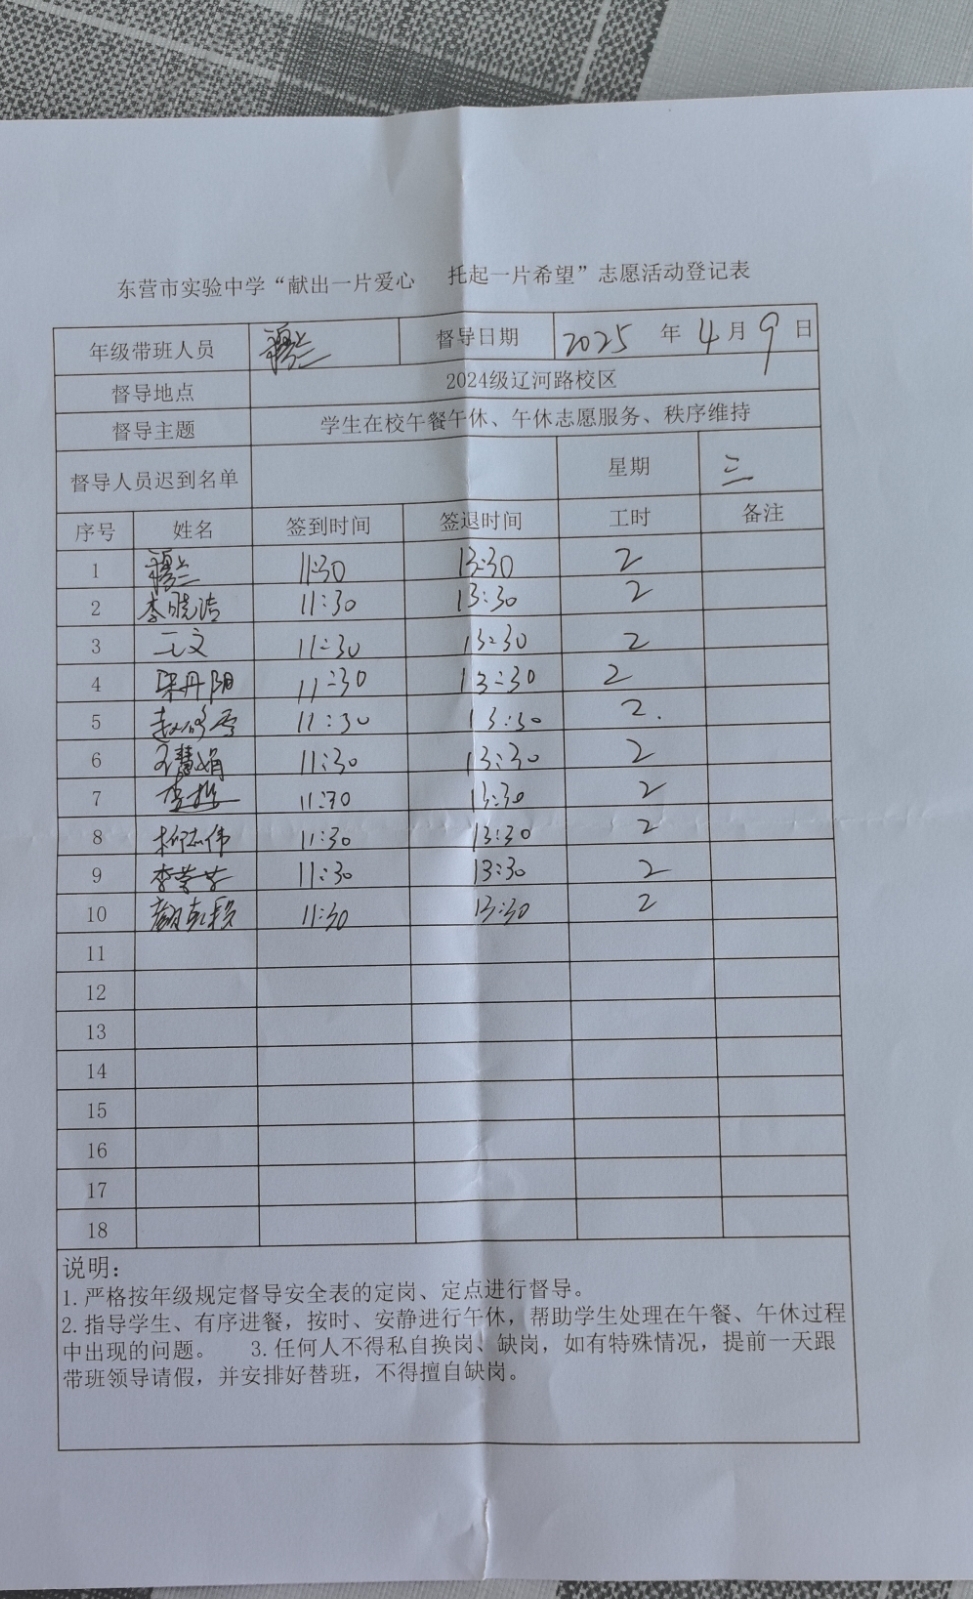 东营市实验中学“献出一片爱心 托起一片希望”志愿活动登记表
年级带班人员 督导日期 2025 年 4 月 9 日
督导地点 2024级辽河路校区
督导主题 学生在校午餐午休、午休志愿服务、秩序维持
督导人员迟到名单 星期 三
序号 姓名 签到时间 签退时间 工时 备注
1 11:30 13:30 2
2 李晓洁 11:30 13:30 2
3 王文 11:30 13:30 2
4 梁丹阳 11:30 13:30 2
5 11:30 13:30 2.
6 王慧娟 11:30 13:30 2
7 11:30 13:30 2
8 柳志伟 11:30 13:30 2
9 李荣芳 11:30 13:30 2
10 11:30 13:30 2
11
12
13
14
15
16
17
18
说明：
1.严格按年级规定督导安全表的定岗、定点进行督导。
2.指导学生、有序进餐，按时、安静进行午休，帮助学生处理在午餐、午休过程
中出现的问题。 3.任何人不得私自换岗、缺岗，如有特殊情况，提前一天跟
带班领导请假，并安排好替班，不得擅自缺岗。